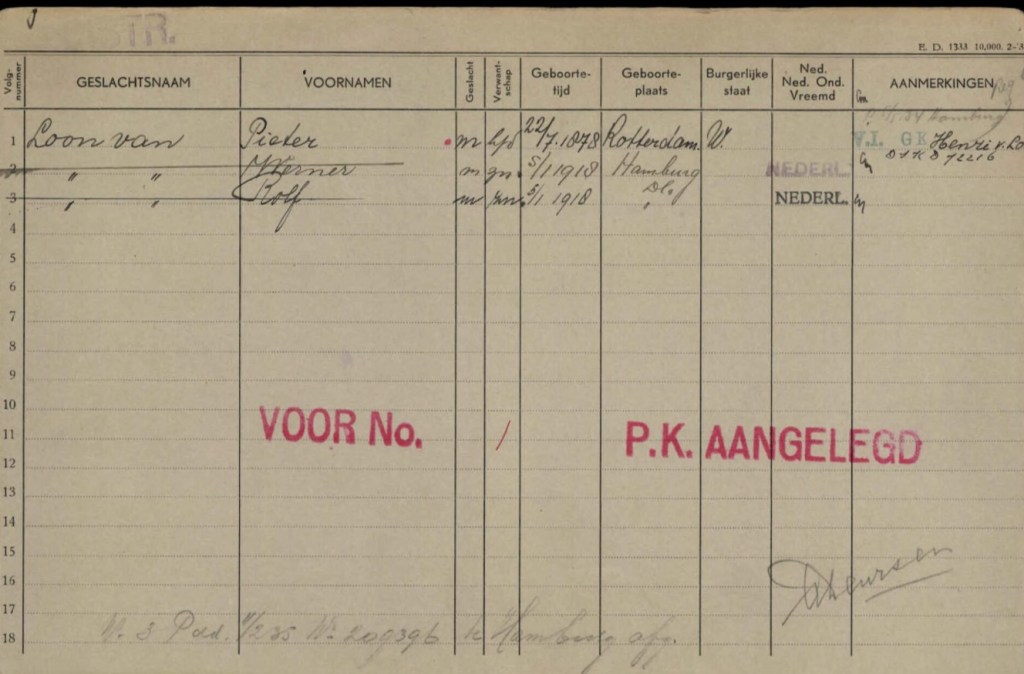 STR.
E. D. 1333 10,000. 2-'3
Volg-nummer GESLACHTSNAAM VOORNAMEN Geslacht Verwant-schap Geboorte-tijd Geboorte-plaats Burgerlijke staat Ned. Ned. Ond. Vreemd AANMERKINGEN
Hamburg
1 Loon van Pieter m hfd 22/7.1878 Rotterdam. W. V.I. GK Henri v. Lo
2 " " Werner m zn. 5/1 1918 Hamburg NEDERL. D1KB 72216
Dl.
3 " " Rolf m zn. 5/1 1918 " NEDERL.
4
5
6
7
8
9
10
11 VOOR No. / P.K. AANGELEGD
12
13
14
15
16
17
18 N. 3 Pad. 235 No 209396 te Hamburg afg.